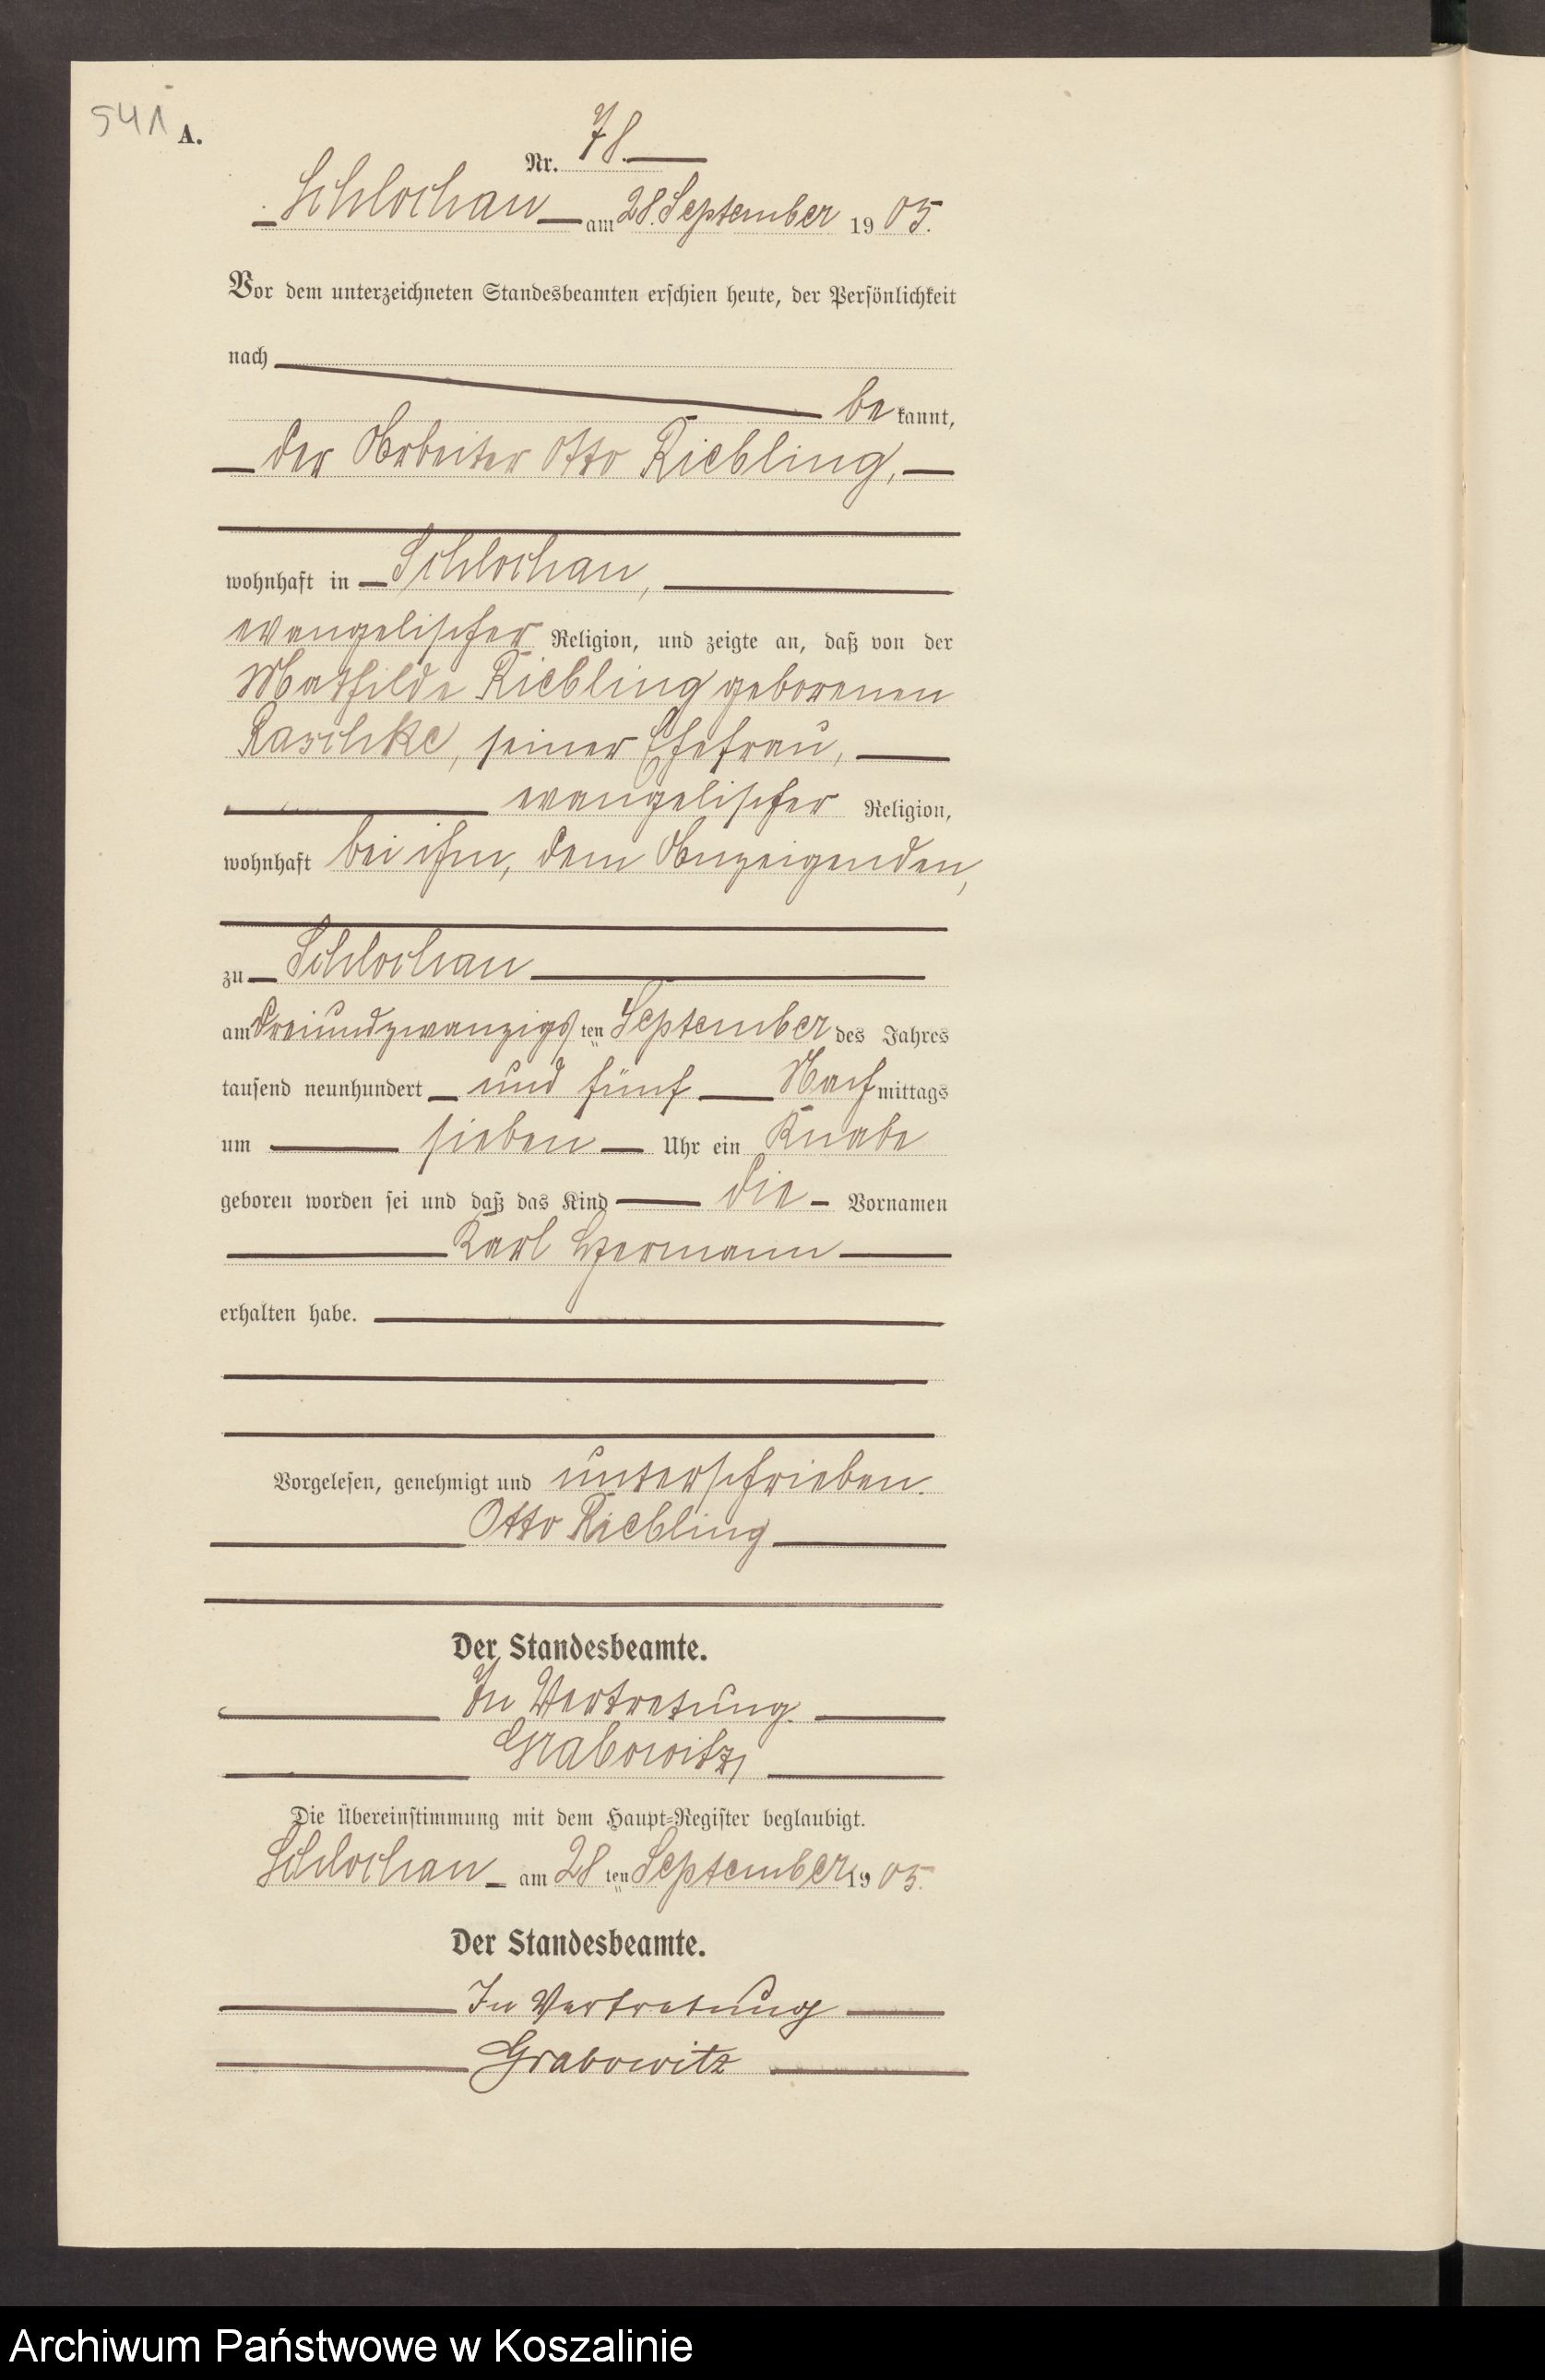 541 A.
Nr. 78.
Schlochau am 28. September 1905.
Vor dem unterzeichneten Standesbeamten erschien heute, der Persönlichkeit
nach
bekannt,
der Arbeiter Otto Riebling,
wohnhaft in Schlochau,
evangelischer Religion, und zeigte an, daß von der
Mathilde Riebling geborenen
Raschke, seiner Ehefrau,
evangelischer Religion,
wohnhaft bei ihm, dem Anzeigenden,
zu Schlochau
am dreiundzwanzigsten September des Jahres
tausend neunhundert und fünf Nachmittags
um sieben Uhr ein Knabe
geboren worden sei und daß das Kind die Vornamen
Karl Hermann
erhalten habe.
Vorgelesen, genehmigt und unterschrieben.
Otto Riebling
Der Standesbeamte.
In Vertretung
Grabowitz
Die Übereinstimmung mit dem Haupt-Register beglaubigt.
Schlochau am 28ten September 1905.
Der Standesbeamte.
In Vertretung
Grabowitz
Archiwum Państwowe w Koszalinie